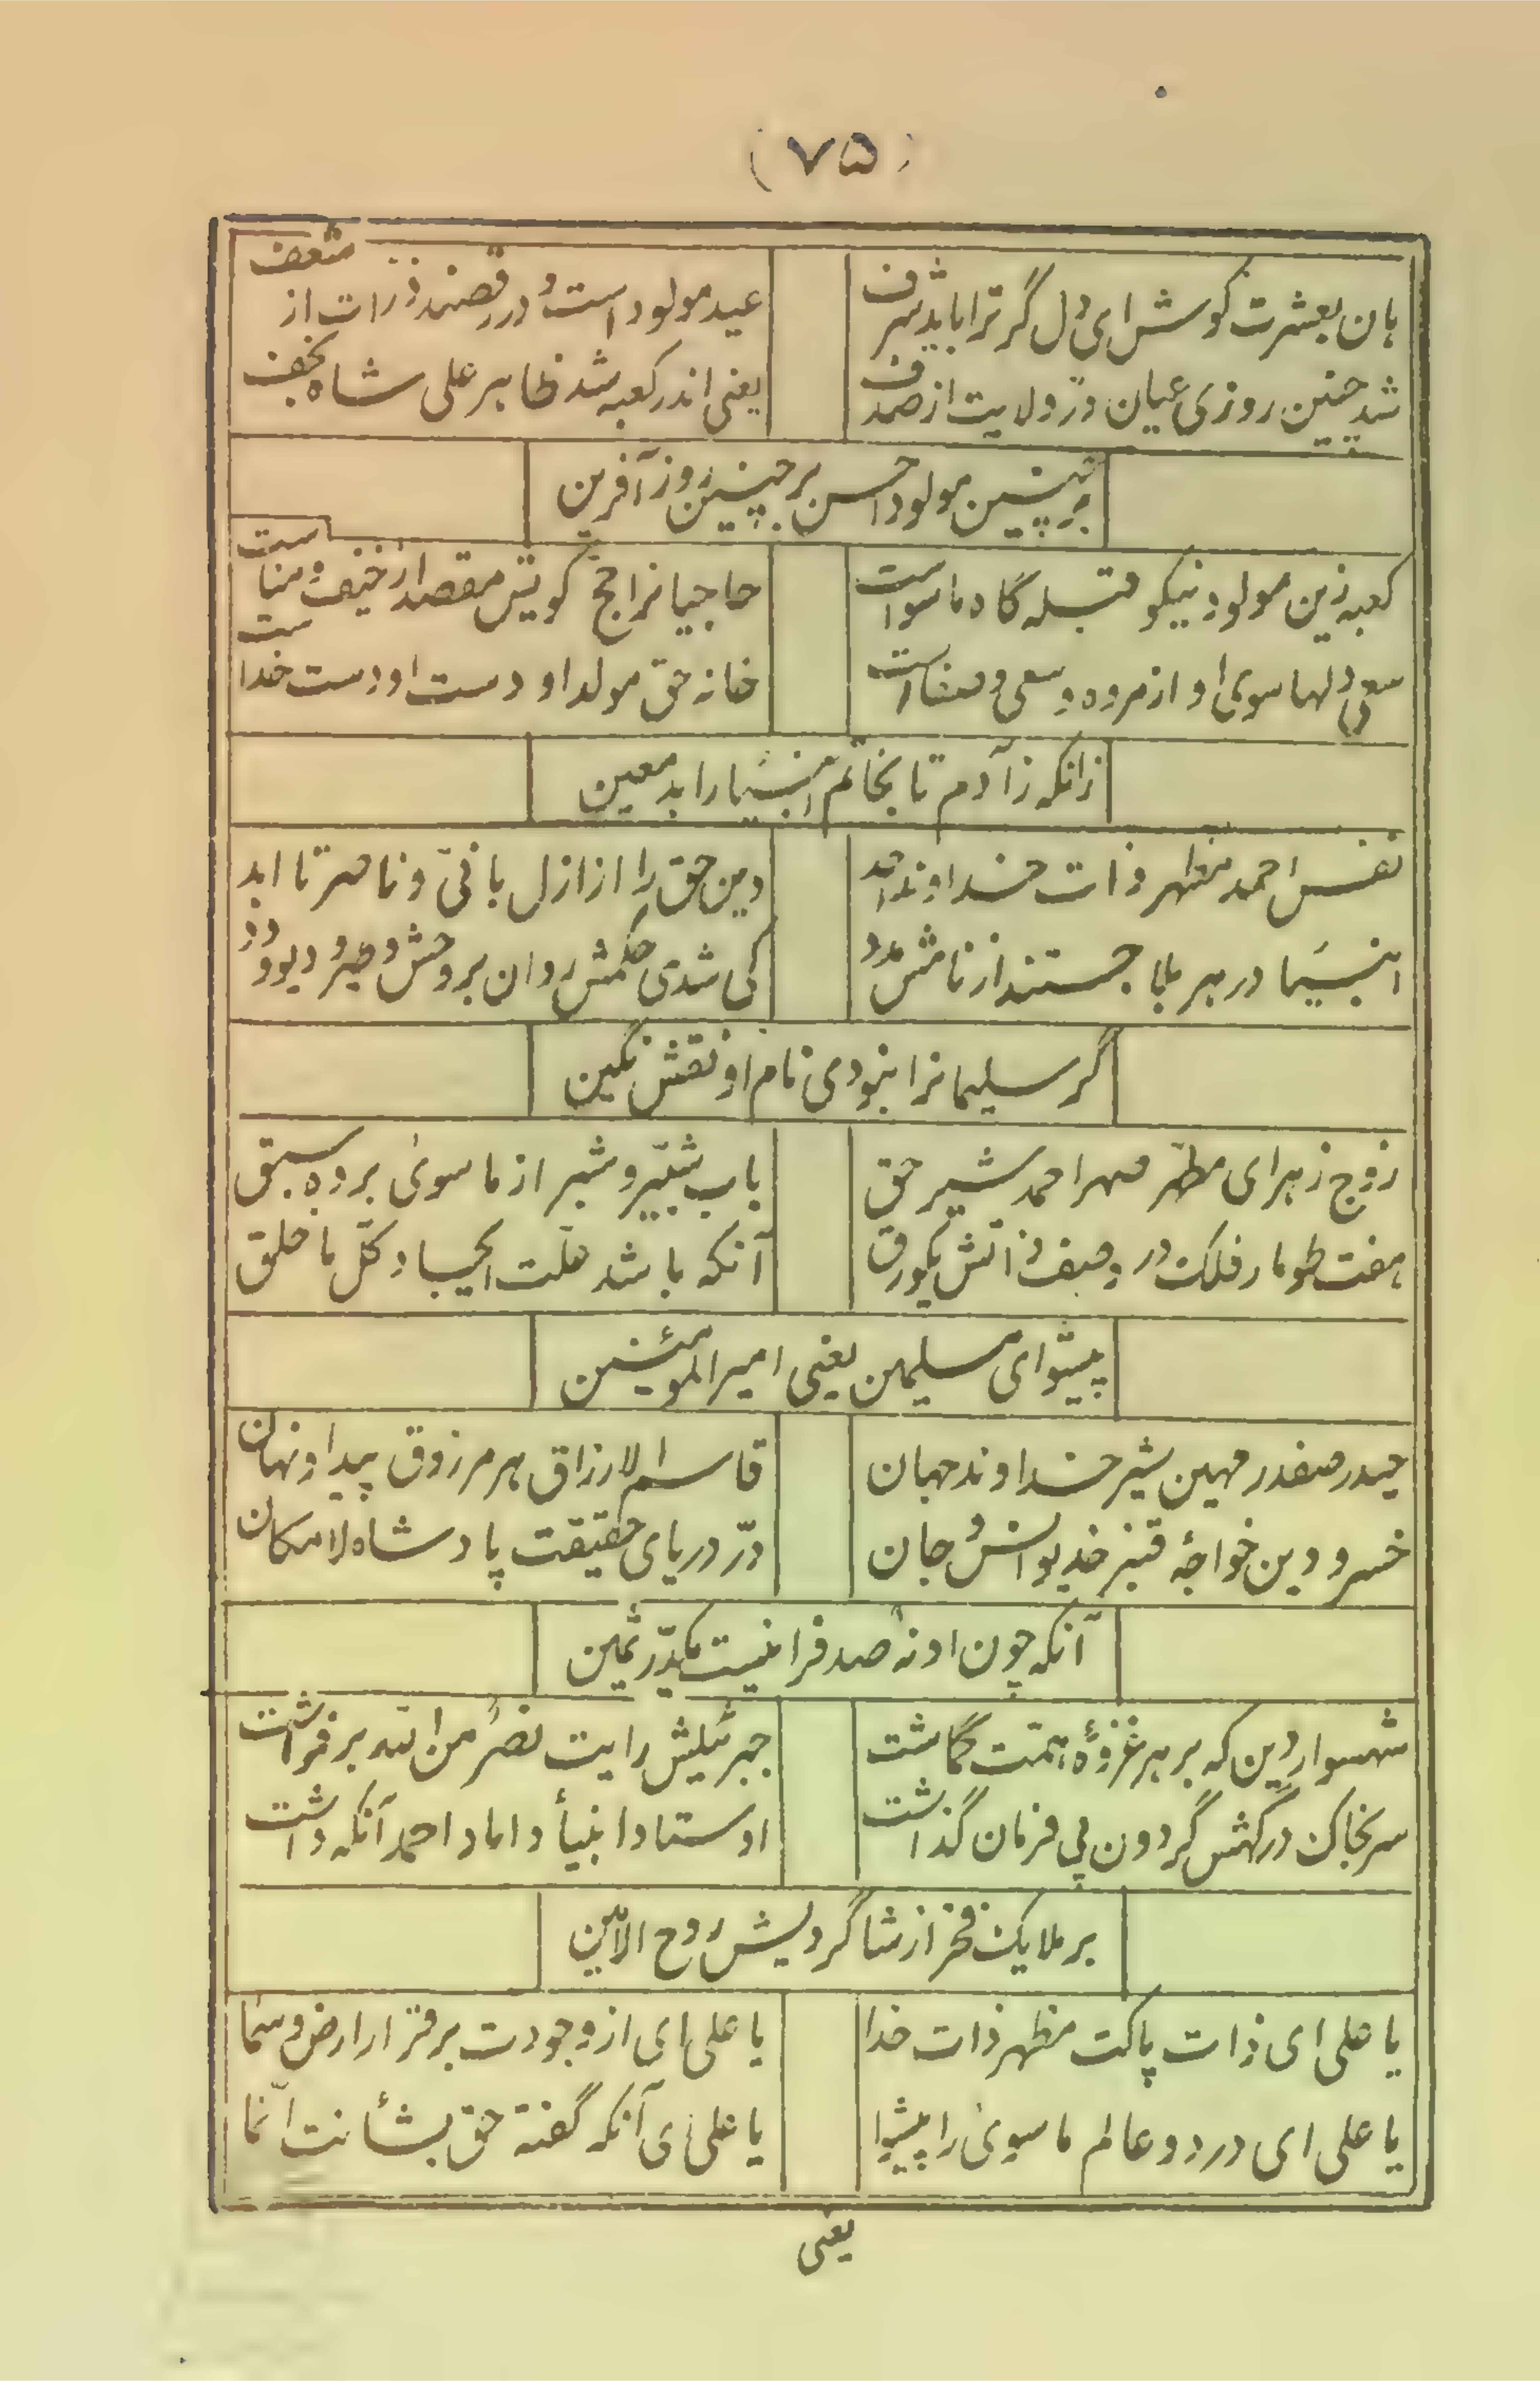 (۷۵)
هان بعشرت کوش ای دل گر ترا باید شرف
عید مولود است و در رقصند ذرات از شعف
شد چنین روزی عیان درّ ولایت از صدف
یعنی اندر کعبه شد ظاهر علی شاه نجف
بر چنین مولود احسن بر چنین روز آفرین
کعبه زین مولود نیکو قبله گاه ماسواست
حاجیانرا حج کویش مقصد از خیف و مناست
سعی دلها سوی او از مروه و سعی و صفاست
خانه حق مولد او دست او دست خداست
زانکه ز آدم تا بخاتم انبیا را بد معین
نفس احمد مظهر ذات خداوند احد
دین حق را از ازل بانی و ناصر تا ابد
انبیا در هر بلا جستند از نامش مدد
کی شدی حکمش روان بر وحش و طیر و دیو و دد
گر سلیمانرا نبودی نام او نقش نگین
زوج زهرای مطهّر صهر احمد شیر حق
باب شبّیر و شبر از ماسوی برده سبق
هفت طومار فلک در وصف ذاتش یکورق
آنکه باشد علّت ایجاد کلّ ما خلق
پیشوای مسلیمن یعنی امیرالمومنین
حیدر صفدر مهین شیر خداوند جهان
قاسم الارزاق هر مرزوق پیدا و نهان
خسرو دین خواجهٔ قنبر خدیو انس و جان
درّ دریای حقیقت پادشاه لامکان
آنکه چون او نه صدفرا نیست یکدرّ ثمین
شهسوار دین که بر هر غزوهٔ همّت گماشت
جبرئیلش رایت نصرٌ من الله برفراشت
سر بخاک درگهش گردون پی فرمان گذاشت
اوستاد انبیأ داماد احمد آنکه داشت
بر ملایک فخر از شاگردیش روح الامین
یا علی ای ذات پاکت مظهر ذات خدا
یا علی ای از وجودت برقرار ارض و سما
یا علی ای در دو عالم ماسوی را پیشوا
یا علی ای آنکه گفته حق بشأنت انّما
یعنی